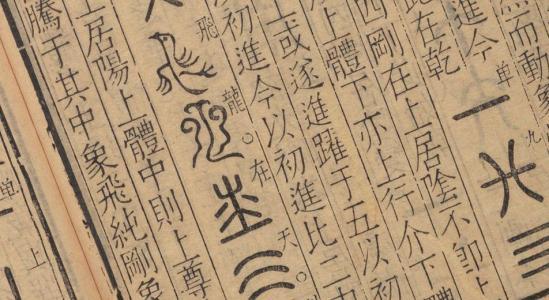 然而動象
進今
在乾
单
九
剛在上居陰不卽
上體下亦上行介下
上或遂進躍于五以初
初進今以初進比二
飛龍在天
上居陽上體中則上尊
騰于其中象飛純剛象
上